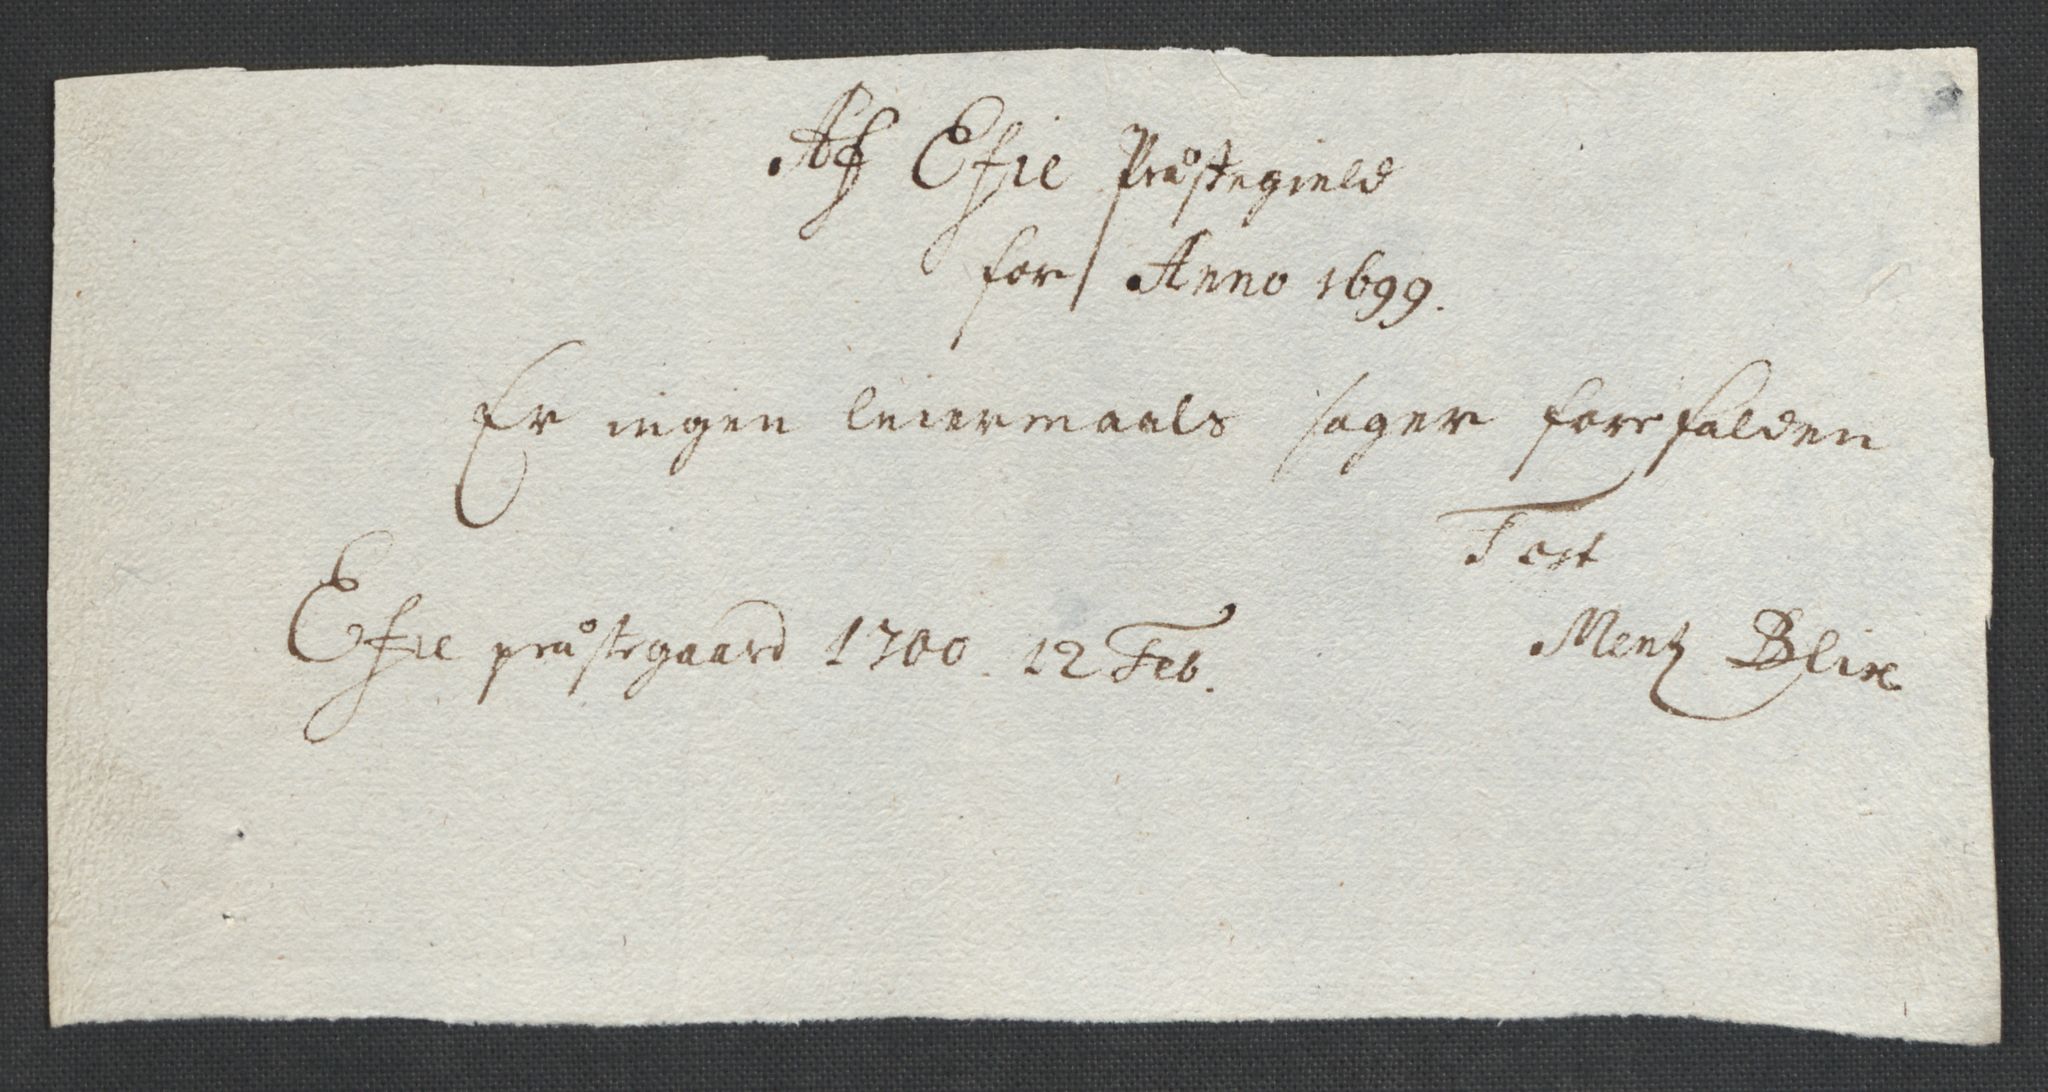 Af Efie Præstegield
for Anno 1699.
Er ingen leiermaals sager forefalden
Test
Efie præstegaard 1700. 12 Feb.
Mentz Blix